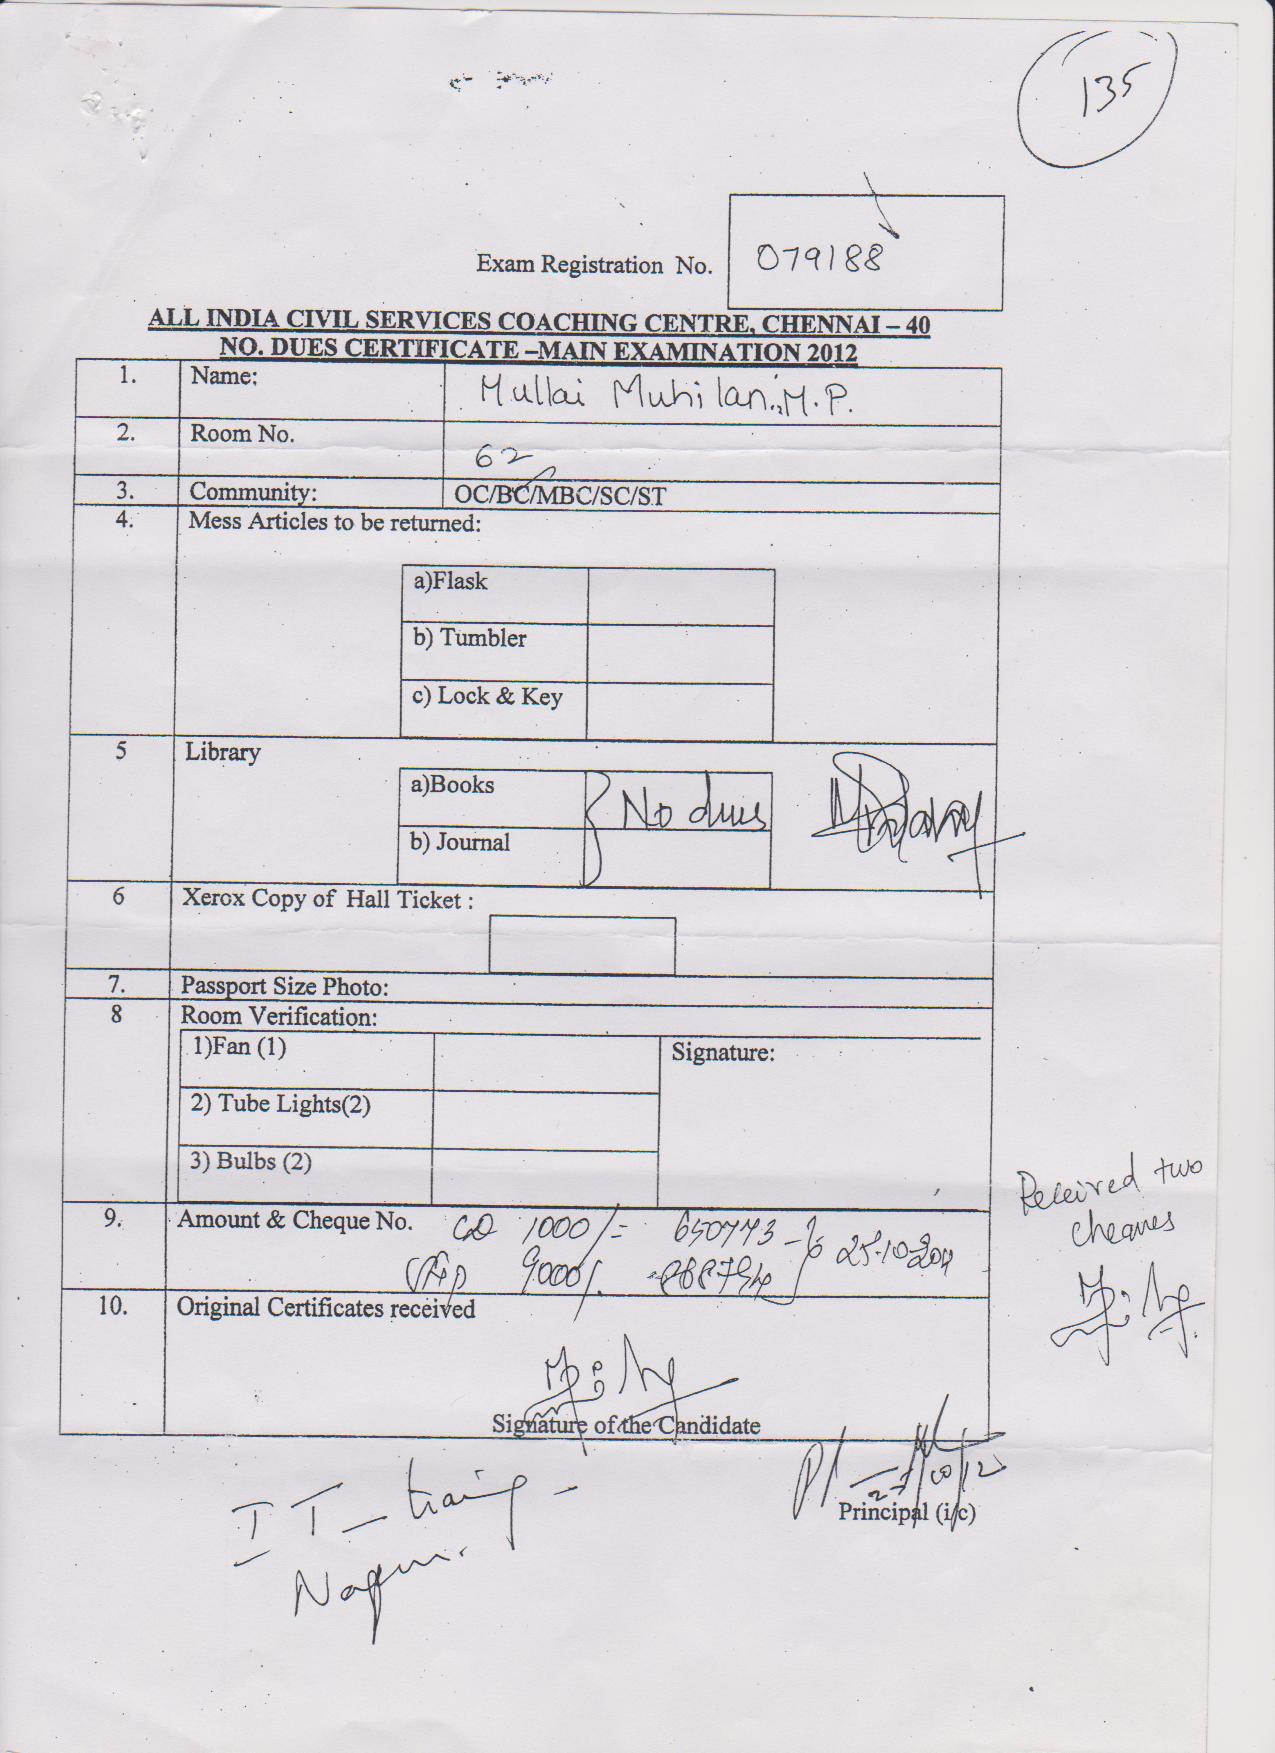 135
Exam Registration No. 079188
ALL INDIA CIVIL SERVICES COACHING CENTRE, CHENNAI – 40
NO. DUES CERTIFICATE –MAIN EXAMINATION 2012
1. Name: Mullai Muhilan.,M.P.
2. Room No. 62
3. Community: OC/BC/MBC/SC/ST
4. Mess Articles to be returned:
a)Flask
b) Tumbler
c) Lock & Key
5 Library
a)Books No dues
b) Journal
6 Xerox Copy of Hall Ticket :
7. Passport Size Photo:
8 Room Verification:
1)Fan (1) Signature:
2) Tube Lights(2)
3) Bulbs (2)
Received two
cheques
9. Amount & Cheque No. CD 1000/- 650773
9000/.
10. Original Certificates received
Signature of the Candidate
Principal (i/c)
IT - training -